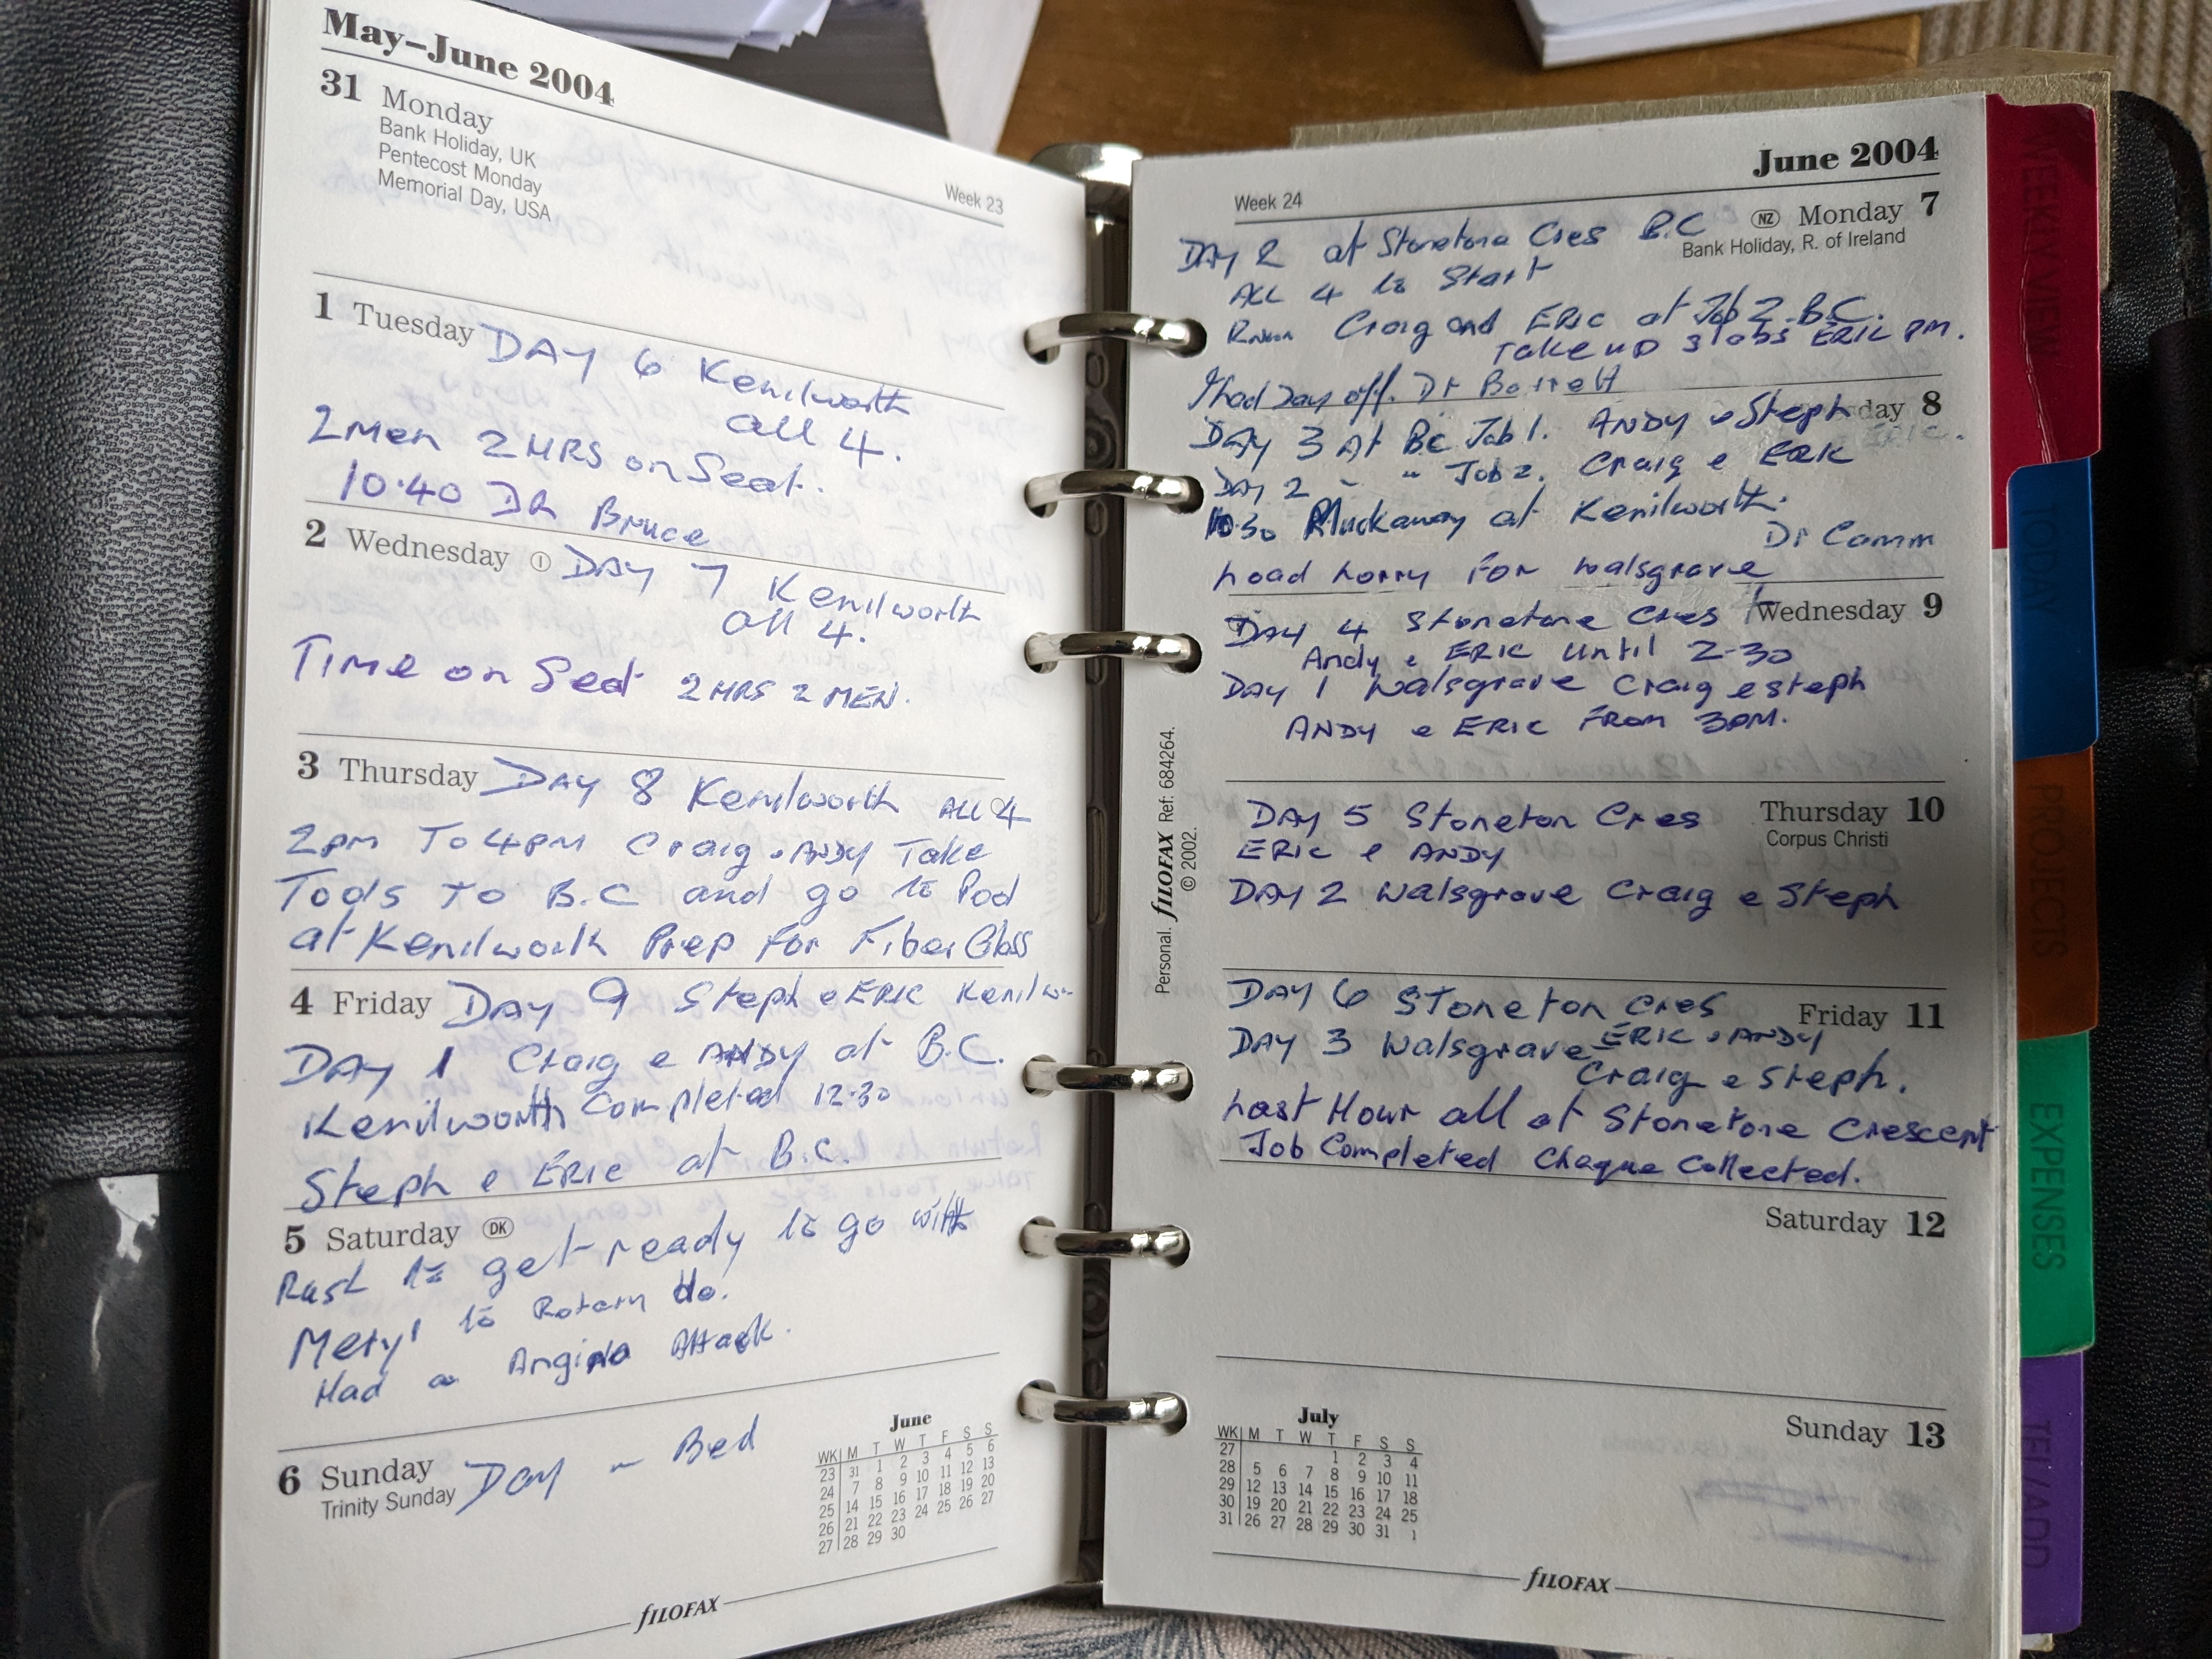 May–June 2004
31 Monday
Bank Holiday, UK
Pentecost Monday
Memorial Day, USA
Week 23
1 Tuesday DAY 6 Kenilworth
all 4.
2 Men 2 HRS on Seat.
10.40 DR Bruce
2 Wednesday DAY 7 Kenilworth
all 4.
Time on Seat 2 HRS 2 MEN.
3 Thursday DAY 8 Kenilworth ALL 4
2pm To 4pm Craig & ANDY Take
Tools To B.C and go to Pod
at Kenilworth Prep For Fiber Glass
4 Friday DAY 9 Steph e ERIC Kenilw
DAY 1 Craig e ANDY at B.C.
Kenilworth Completed 12.30
Steph e ERIC at B.C.
5 Saturday DK
Rush to get ready to go with
Meryl to Rotary do.
Had a Angina Attack.
6 Sunday Day in Bed
Trinity Sunday
June
WK M T W T F S S
23 31 1 2 3 4 5 6
24 7 8 9 10 11 12 13
25 14 15 16 17 18 19 20
26 21 22 23 24 25 26 27
27 28 29 30
fILOFAX
June 2004
Week 24
NZ Monday 7
Bank Holiday, R. of Ireland
DAY 2 at Stonetone Cres B.C
ALL 4 to Start
Craig and ERIC at Job 2 B.C.
Take up slabs ERIC PM.
I had Day off. Dr Barrett
day 8
DAY 3 At BC Job 1. ANDY & Steph
DAY 2 " " Job 2. Craig e ERIK
10.30 Muckaway at Kenilworth.
Dr Camm
Load Lorry For Walsgrave
Wednesday 9
DAY 4 Stonetone Cres
Andy e ERIC Until 2-30
DAY 1 Walsgrave Craig e Steph
ANDY e ERIC From 3PM.
Thursday 10
Corpus Christi
DAY 5 Stoneton Cres
ERIC e ANDY
DAY 2 Walsgrave Craig e Steph
Friday 11
DAY 6 Stoneton Cres
ERIC & ANDY
DAY 3 Walsgrave
Craig e Steph.
Last Hour all at Stonetone Crescent
Job Completed Chaque Collected.
Saturday 12
Sunday 13
July
WK M T W T F S S
27 1 2 3 4
28 5 6 7 8 9 10 11
29 12 13 14 15 16 17 18
30 19 20 21 22 23 24 25
31 26 27 28 29 30 31 1
fILOFAX
Personal. fILOFAX Ref: 684264.
© 2002.
WEEKLY VIEW
TODAY
PROJECTS
EXPENSES
TEL/ADD